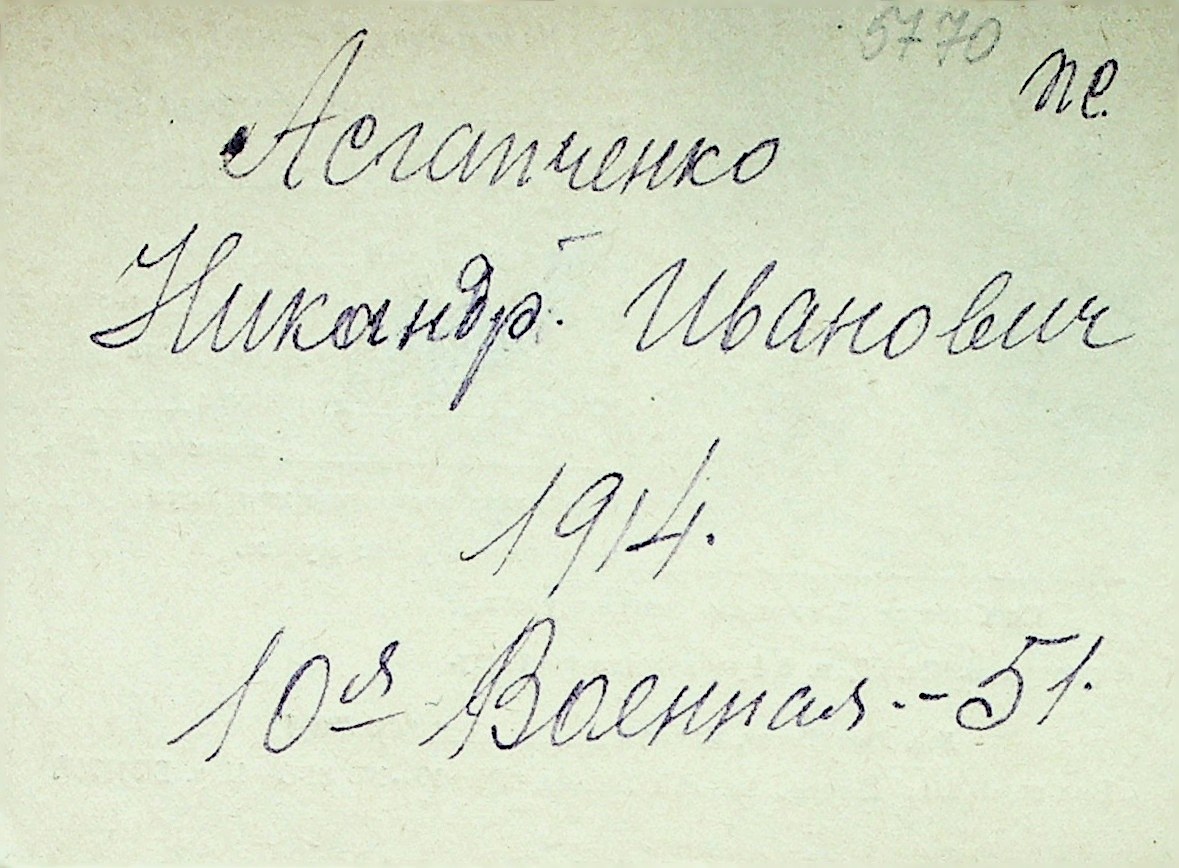 5770
пе.
Асгапченко
Никандр. Иванович
1914.
10я Военная. - 51.